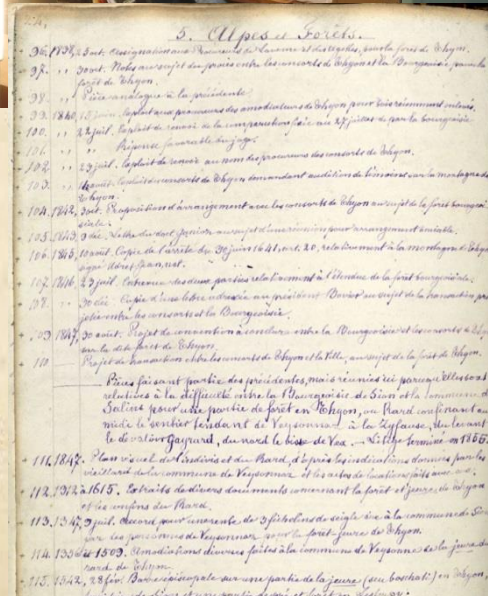 5. Alpes et Forêts.
96. 1838, 23 oct. Assignation aux Procureurs de Lavorne et des Agettes, pour la forêt de Thyon.
97. " 30 oct. Notes au sujet du procès entre les consorts de Thyon et la Bourgeoisie pour la
forêt de Thyon.
98. " Pièce analogue à la précédente
99. 1840, juin, Exploit aux procureurs des amodiateurs de Thyon pour bois récemment
100. " 22 juil. Exploit de renvoi de la comparution fixée au 27 juillet de par la bourgeoisie
" Réponse favorable du juge.
102. " 23 juil. Exploit de renvoi au nom des procureurs des consorts de Thyon.
103. " Exploit des consorts de Thyon demandant audition de témoins sur la montagne de
Thyon.
104. 1842, Proposition d'arrangement avec les consorts de Thyon au sujet de la forêt bourgeoi-
siale.
105. 1843, 9 déc. Lettre du au sujet d'une réunion pour arrangement amiable.
106. 1845, 10 août. Copie de l'arrêté du 30 juin 1641, art. 20, relativement à la montagne de Thyon
signé
107. 1846 23 juil. Entrevue des deux parties relativement à l'étendue de la forêt bourgeoisiale.
108. " 30 déc. Copie d'une lettre adressée au président Bovier au sujet de la transaction pro-
jetée entre les consorts et la Bourgeoisie.
109. 1847, 30 août. Projet de convention à conclure entre la Bourgeoisie et les consorts de
sur la dite forêt de Thyon.
110 Projet de transaction entre les consorts de Thyon et la Ville, au sujet de la forêt de Thyon.
Pièces faisant partie des précédentes, mais réunies ici parce qu'elles sont
relatives à la difficulté entre la Bourgeoisie de Sion et la commune de
Salins pour une partie de forêt en Thyon, au Rard confinant au
midi le sentier tendant de Veysonnaz à la Zafause, du levant
le dévaloir Gayrard, du nord le bisse de Vex. — Litige terminé en 1856.
111. 1847. Plan visuel de l'indivis et du Rard, d'après les indications données par les
vieillards de la commune de Veysonnaz et les actes de location faits avec
112. à 1615. Extraits de divers documents concernant la forêt et jeure de Thyon
et les confins du Rard.
113. 1347, 9 juil. Accord pour une rente de 3 fichelins de seigle due à la commune de Sion
par les personnes de Veysonnaz pour la forêt-jeure de Thyon.
114. à 1509. Amodiations diverses faites à la commune de Veysonnaz de la jeure du
rard de Thyon.
115. 1542, 28 fév. Barre épiscopale sur une partie de la jeure (seu boschati) en Thyon,